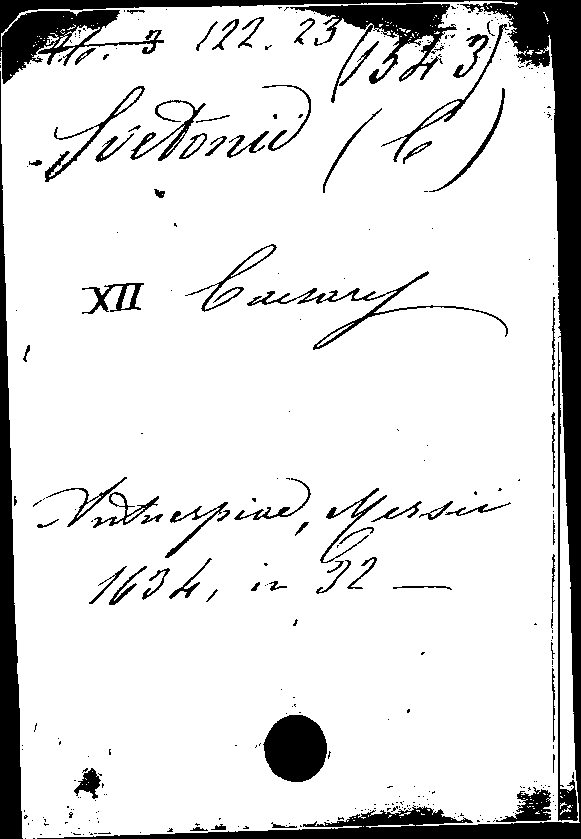 122. 23 (1343)
Svetonii (C)
XII Caesares
Antuerpiae, Mersii
1634, in 32 —